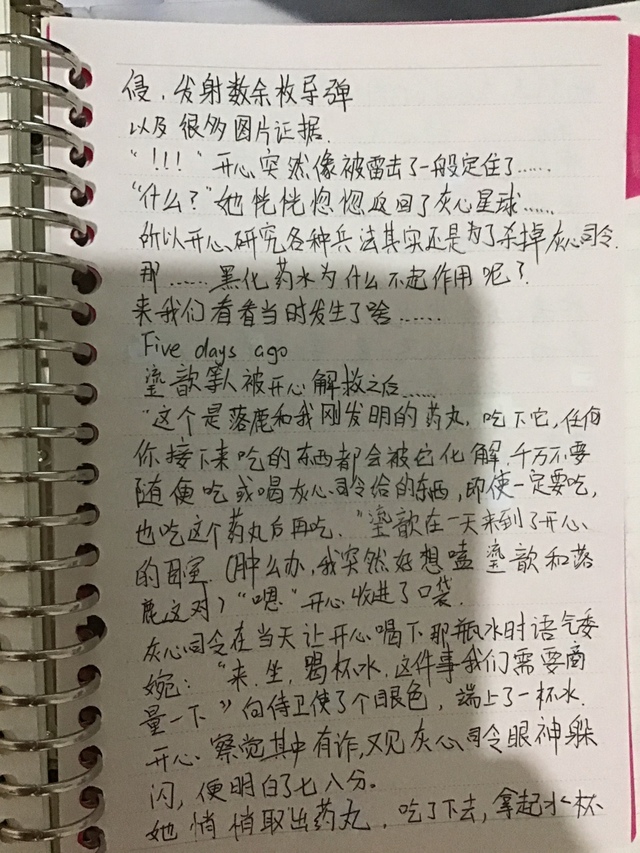 侵,发射数余枚导弹
以及很多图片证据.
“!!!”开心突然像被雷击了一般定住了……
“什么?”她恍恍惚惚返回了灰心星球……
所以开心研究各种兵法其实还是为了杀掉灰心司令.
那……黑化药水为什么不起作用呢?
来我们看看当时发生了啥……
Five days ago
鎏歆等人被开心解救之后……
“这个是落鹿和我刚发明的药丸,吃下它,任何
你接下来吃的东西都会被它化解.千万不要
随便吃或喝灰心司令给的东西,即使一定要吃,
也吃这个药丸后再吃.”鎏歆在一天来到了开心
的卧室.(肿么办,我突然好想嗑鎏歆和落
鹿这对)“嗯”开心收进了口袋.
灰心司令在当天让开心喝下那瓶水时语气委
婉:“来.坐,喝杯水.这件事我们需要商
量一下”向侍卫使了个眼色,端上了一杯水.
开心察觉其中有诈,又见灰心司令眼神躲
闪,便明白了七八分。
她悄悄取出药丸,吃了下去,拿起水杯